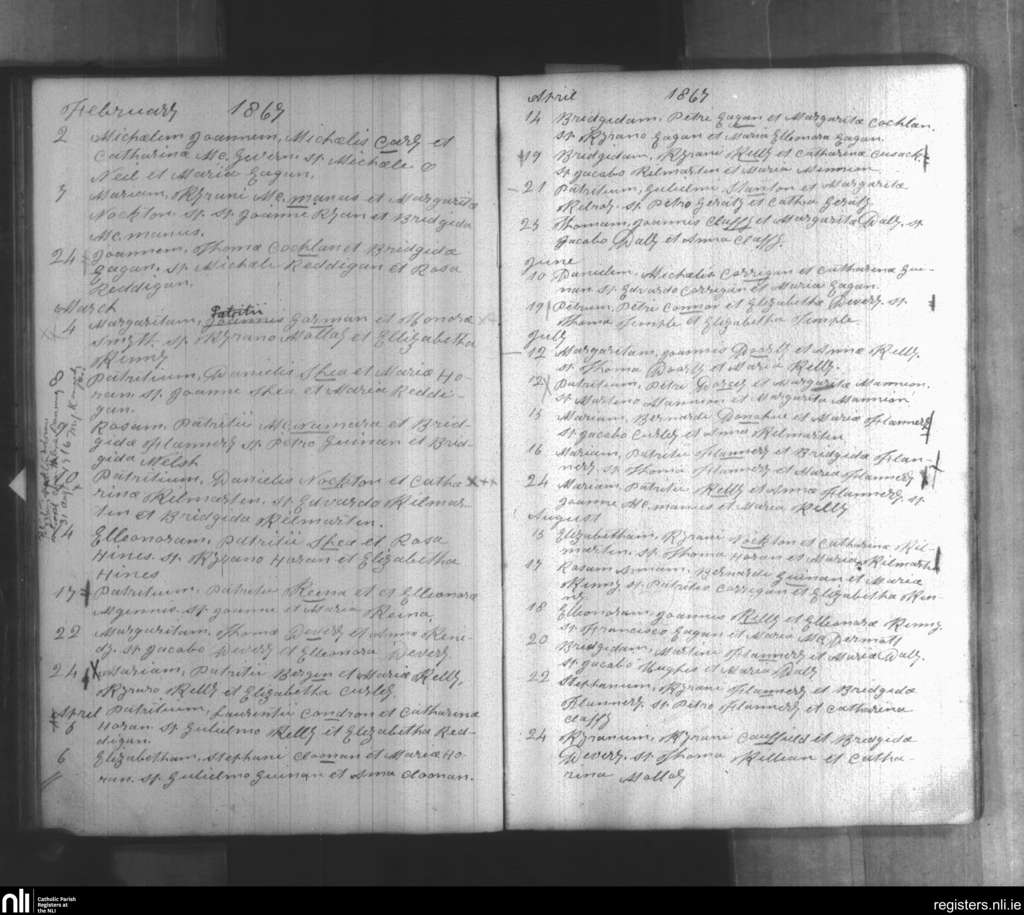 February 1867
2 Michælem Joannem, Michælis Cary et
Catharina Mc. Guern Sp. Michæle O
Neil et Maria Eagan.
7 Mariam, Kyrani Mc. manus et Margarita
Nockton Sp. Sp. Joanne Ryan et Bridgida
Mc. manus.
24 Joannem, Thomæ Cochlan et Bridgida
Eagan. Sp. Michæle Reddigan et Rosa
Reddigan.
March
Patritii
4 Margaritam, Joannis Gorman et Honora
Smyth. Sp. Kyrano Molloy et Ellizabetha
Kenny
8 Patritium, Danielis Shea et Maria Ho-
ran. Sp. Joanne Shea et Maria Reddi-
gan.
9 Rosam, Patritii Mc.namara et Brid-
gida Flannery Sp. Petro Guinan et Brid-
gida Welsh
10 Patritium, Danielis Nockton et Catha
rina Kilmartin. Sp. Edvardo Kilmar-
tin et Bridgida Kilmartin.
14 Elleonoram, Patritii Shea et Rosa
Hines. Sp. Kyrano Horan et Elizabetha
Hines
17 Patritium, Patritii Keena et Elleonora
Sp. Joanne et Maria Keina.
22 Margaritam, Thomæ Devery et Anna Keni-
dy. Sp. Jacobo Devery et Elleonora Devery
24 Mariam, Patritii Bergin et Maria Kelly,
Kyrano Kelly et Elizabetha Curley
April Patritium, Laurentii Condron et Catharina
6 Horan. Sp. Gulielmo Kelly et Elizabetha Red-
digan.
6 Elizabetham, Stephani Cloonan et Maria Ho-
ran. Sp. Gulielmo Guinan et Anna Cloonan.
April 1867
14 Bridgidam, Petri Eagan et Margarita Cochlan.
Sp. Kyrano Eagan et Maria Ellenora Eagan.
19 Bridgidam, Kyrani Kelly et Catharina Cusack
Sp. Jacobo Kilmartin et Maria Mannion.
21 Patritium, Gulielmi Stanton et Margarita
Kilroy. Sp. Petro Geraty et Cathra Geraty
23 Thomam, Joannis Claffy et Margarita Daly. Sp.
Jacobo Daly et Anna Claffy.
June
10 Danielem, Michælis Corrigan et Catharina Gui-
nan Sp. Edvardo Corrigan et Maria Eagan.
19 Petrum, Petri Connor et Elizabetha Devery. Sp.
Thoma Temple et Elizabetha Temple.
July
12 Margaritam, Joannis Doorly et Anna Kelly.
Sp. Thoma Doorly et Maria Kelly.
12 Patritium, Petri Dorcey et Margarita Mannion.
Sp. Martino Mannion et Margarita Mannion
15 Mariam, Bernardi Donahue et Maria Flannery
Sp. Jacobo Curley et Anna Kilmartin
16 Mariam, Patritii Flannery et Bridgida Flan-
nery. Sp. Thoma Flannery et Maria Flannery
24 Mariam, Patritii Kelly et Anna Flannery. Sp.
Joanne Mc. manus et Maria Kelly
August
15 Elizabetham, Kyrani Nockton et Catharina Kil-
martin. Sp. Thoma Horan et Maria Kilmartin
17 Rosam Anniam, Bernardi Guinan et Maria
Kenny Sp. Patritio Corrigan et Elizabetha Ken-
ny
18 Elleonoram, Joannis Kelly et Elleonora Kenny.
Sp. Francisco Eagan et Maria Mc. Dermott
20 Bridgidam, Martini Flannery et Maria Daly.
Sp. Jacobo Hughes et Maria Daly
22 Stephanum, Kyrani Flannery et Bridgida
Flannery. Sp. Petro Flannery et Catharina
Claffy
24 Kyranum, Kyrani Caulfield et Bridgida
Devery. Sp. Thoma Killian et Catha-
rina Molloy
nli Catholic Parish
Registers at
the NLI
registers.nli.ie